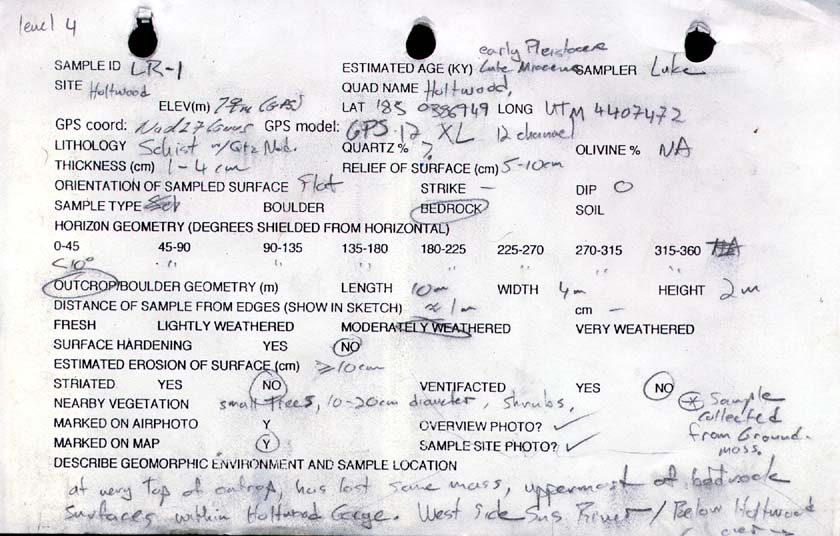 level 4
early Pleistocene
SAMPLE ID LR-1 ESTIMATED AGE (KY) Late Miocene SAMPLER Luke
SITE Holtwood QUAD NAME Holtwood,
ELEV(m) 79m (GPS) LAT 18S 0386949 LONG UTM 4407472
GPS coord: Nad27 Conus GPS model: GPS 12 XL 12 channel
LITHOLOGY Schist w/Qtz Nod. QUARTZ % ? OLIVINE % NA
THICKNESS (cm) 1-4 cm RELIEF OF SURFACE (cm) 5-10cm
ORIENTATION OF SAMPLED SURFACE Flat STRIKE — DIP 0
SAMPLE TYPE BOULDER BEDROCK SOIL
HORIZON GEOMETRY (DEGREES SHIELDED FROM HORIZONTAL)
0-45 45-90 90-135 135-180 180-225 225-270 270-315 315-360
<10° " " " " " " "
OUTCROP/BOULDER GEOMETRY (m) LENGTH 10m WIDTH 4m HEIGHT 2m
DISTANCE OF SAMPLE FROM EDGES (SHOW IN SKETCH) ≈1m cm —
FRESH LIGHTLY WEATHERED MODERATELY WEATHERED VERY WEATHERED
SURFACE HARDENING YES NO
ESTIMATED EROSION OF SURFACE (cm) ≥10cm
STRIATED YES NO VENTIFACTED YES NO
NEARBY VEGETATION small trees, 10-20cm diameter, shrubs,
MARKED ON AIRPHOTO Y OVERVIEW PHOTO? ✓
MARKED ON MAP Y SAMPLE SITE PHOTO? ✓
* Sample
collected
from Ground.
moss.
DESCRIBE GEOMORPHIC ENVIRONMENT AND SAMPLE LOCATION
at very top of outcrop, has lost some mass, uppermost of bedrock
surfaces within Holtwood Gorge. West Side Sus River / Below Holtwood